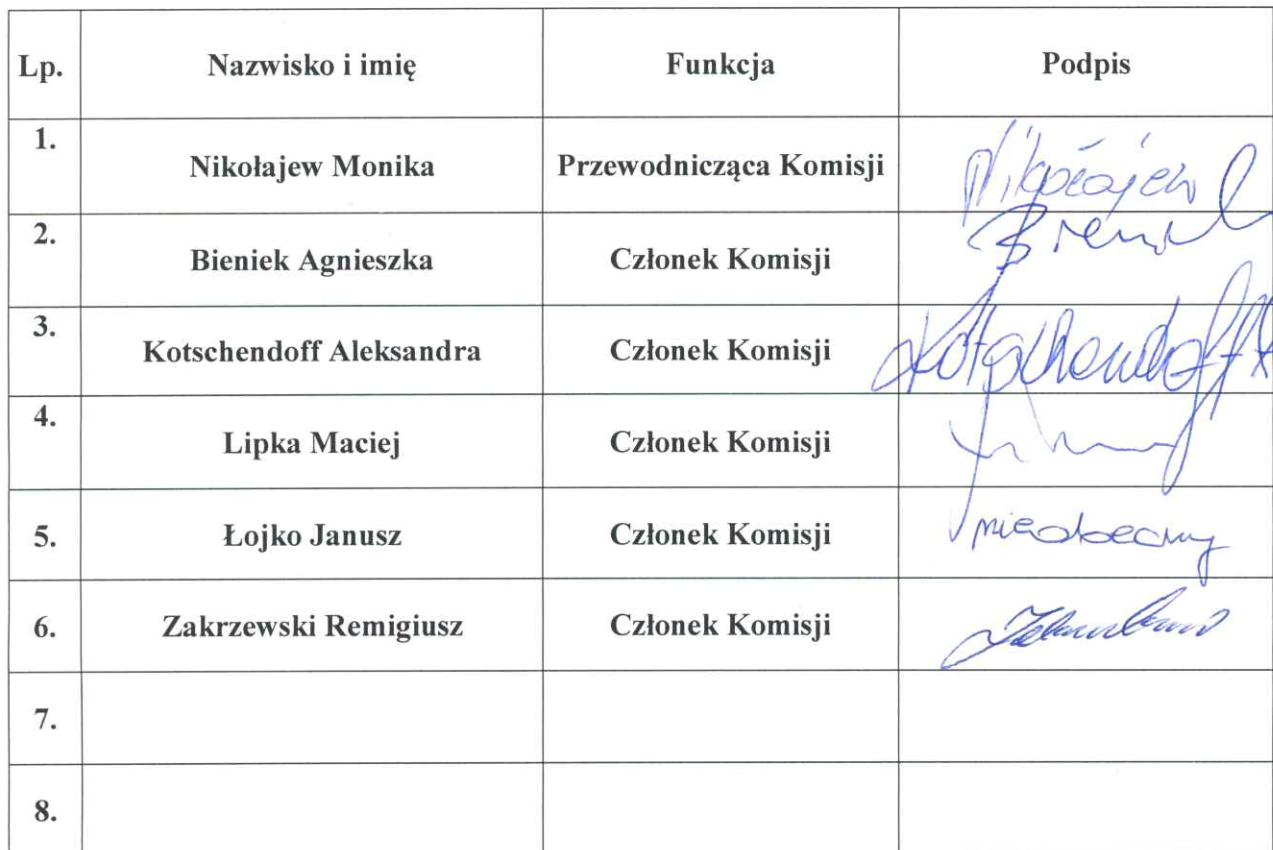 Lp. Nazwisko i imię Funkcja Podpis
1. Nikołajew Monika Przewodnicząca Komisji Nikołajew
2. Bieniek Agnieszka Członek Komisji
3. Kotschendoff Aleksandra Członek Komisji Kotschendoff A
4. Lipka Maciej Członek Komisji
5. Łojko Janusz Członek Komisji nieobecny
6. Zakrzewski Remigiusz Członek Komisji
7.
8.